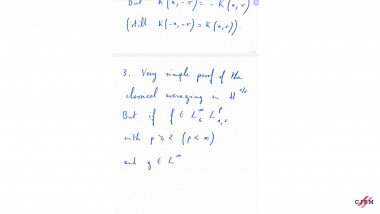 But K(x,-v) = - K(x,v)
(still K(-x,-v) = K(x,v)).
3. Very simple proof of the
classical averaging in H^{1/2}
But if f ∈ L^∞_t L^p_{x,v}
with p ≥ 2 (p < ∞)
and g ∈ L^∞
CIRM